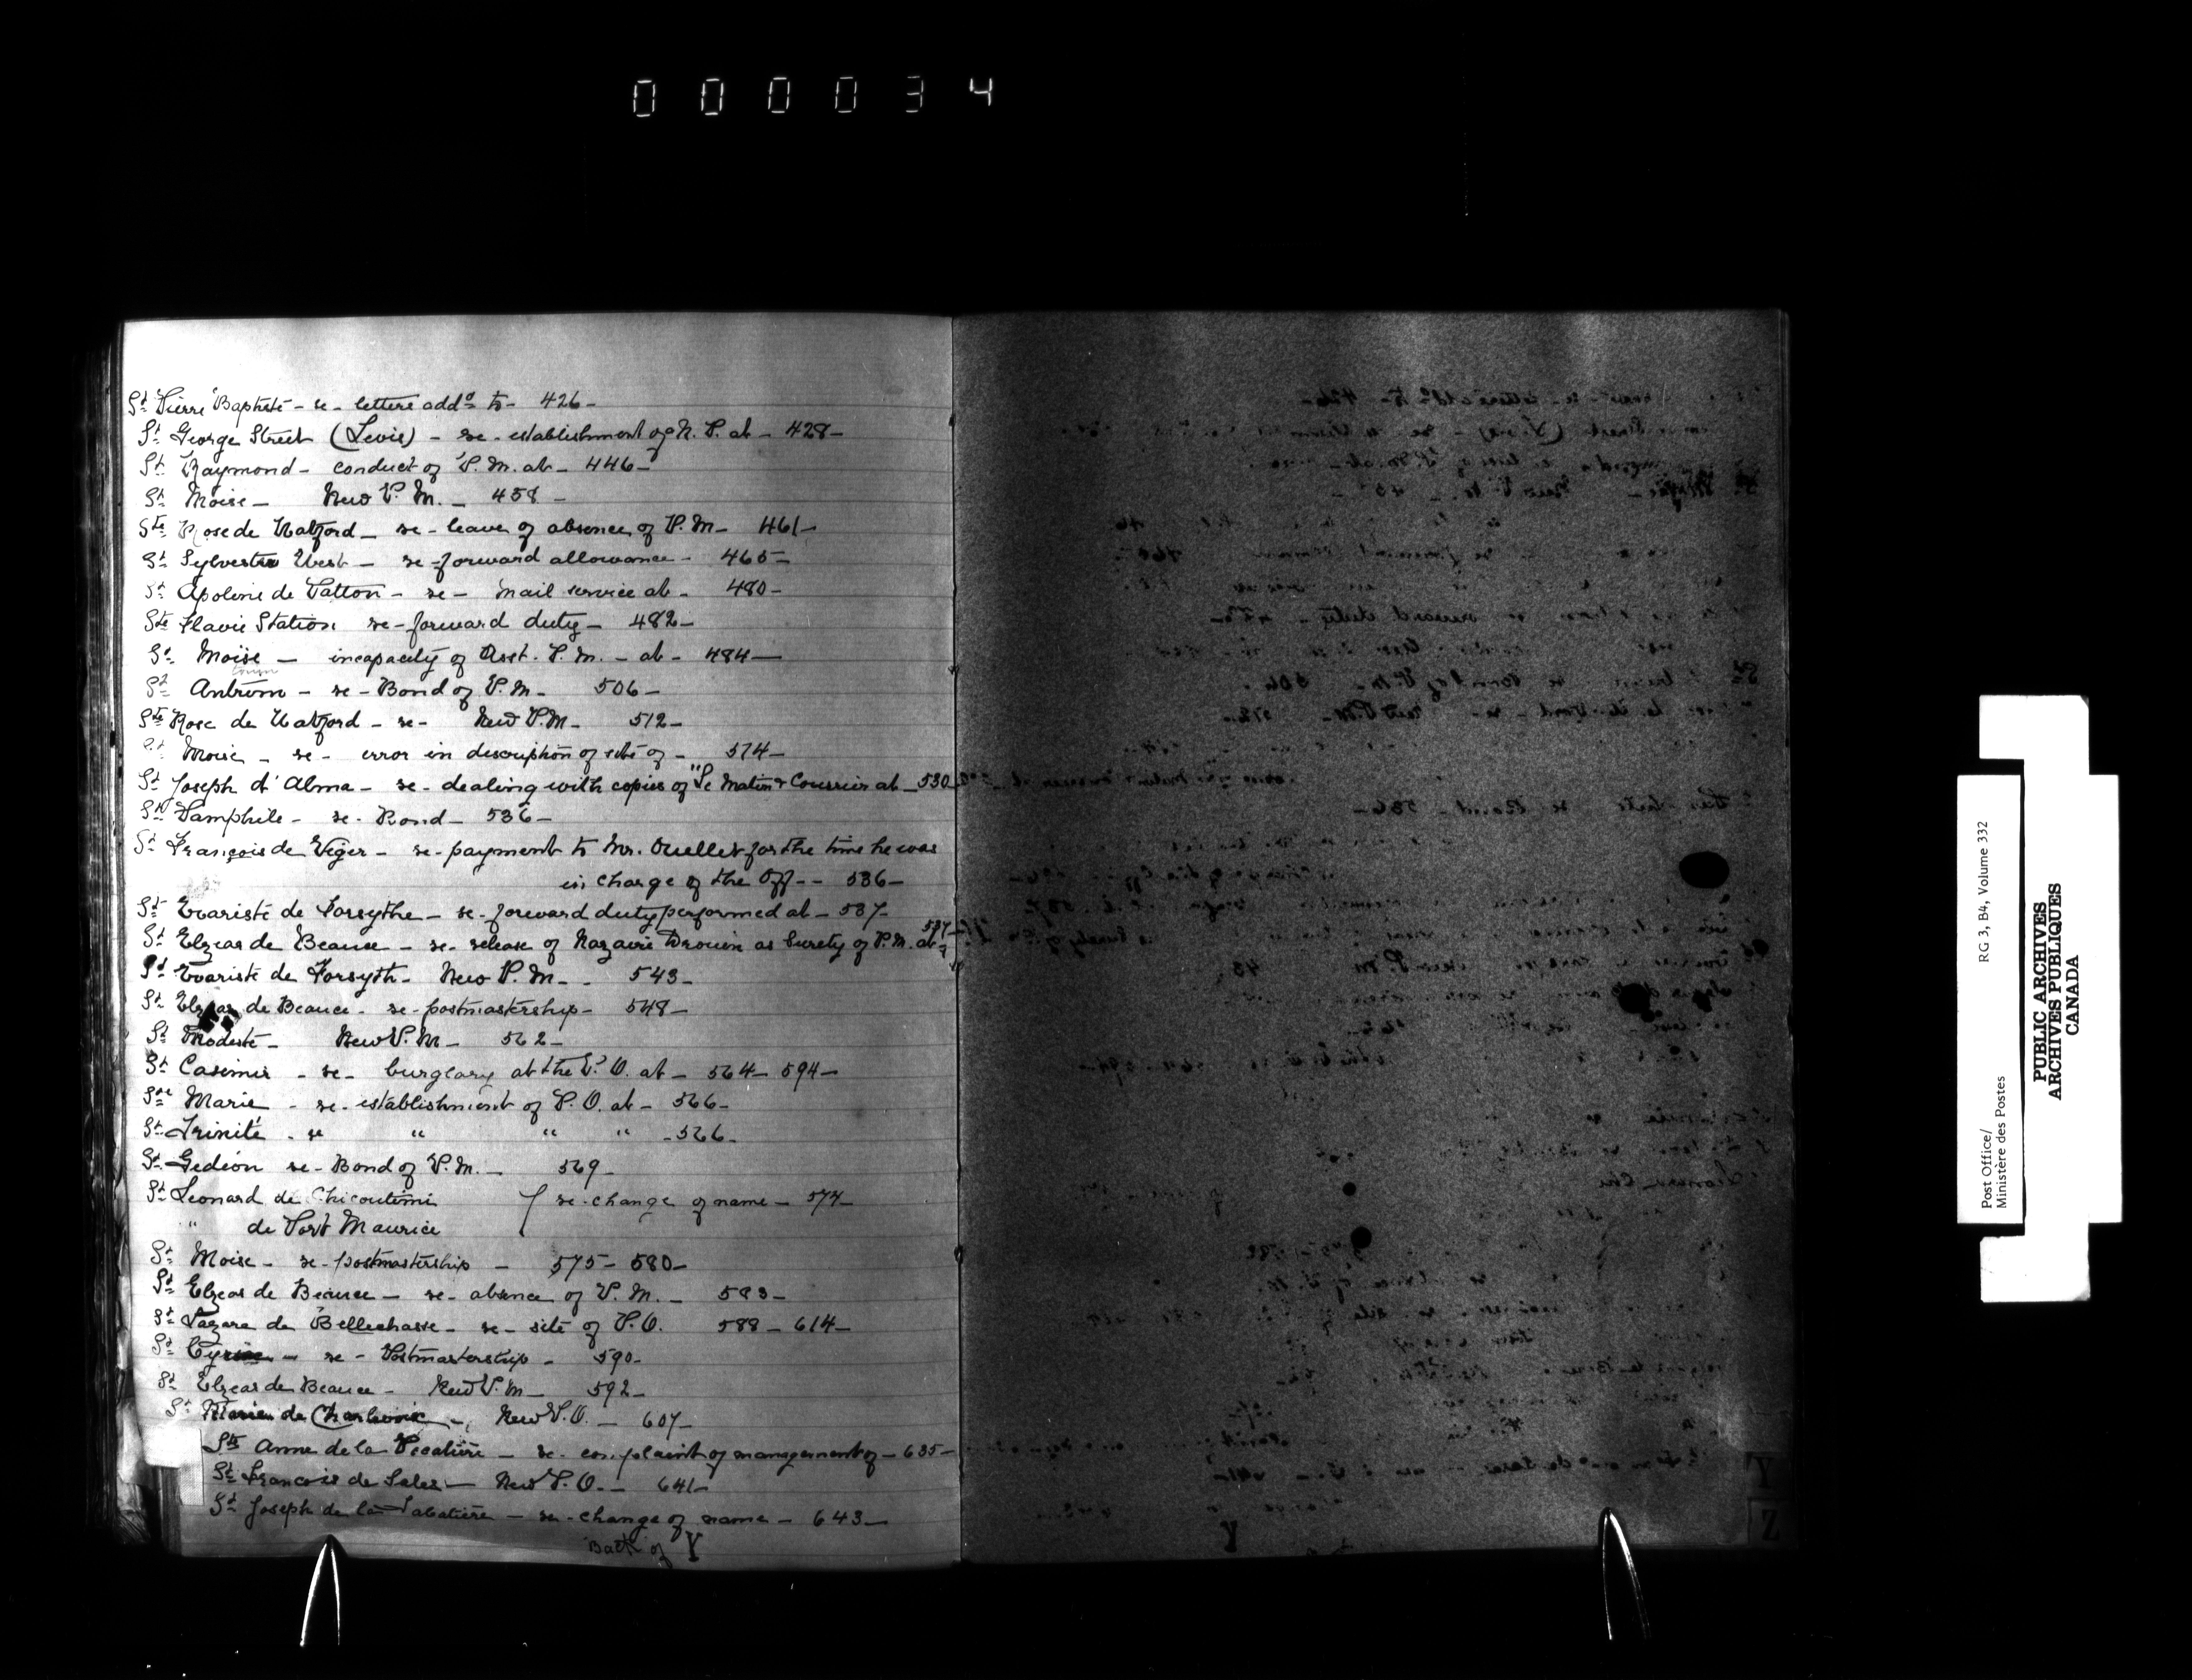 000034
St Pierre Baptiste - re - letters addd to - 426 -
St George Street (Levis) - re - establishment of N. P. at - 428 -
St Raymond - conduct of P. M. at - 446 -
St Moise - New P. M. - 458 -
Ste Rose de Watford - re - leave of absence of P. M - 461 -
St Sylvester West - re - forward allowance - 465 -
St Apolinie de Patton - re - mail service at - 480 -
Ste Flavie Station re - forward duty - 482 -
St Moïse - incapacity of Asst. P. M. - at - 484 -
St Antrim - re - Bond of P. M - 506 -
Ste Rose de Watford - re - New P. M - 512 -
St Moise - re - error in description of site of - 514 -
St Joseph d'Alma - re - dealing with copies of "Le Matin & Courrier at - 530
St Pamphile - re - Bond - 536 -
St François de Viger - re - payment to Mr. Ouellet for the time he was
in charge of the Off - - 536 -
St Evariste de Forsythe - re - forward duty performed at - 537 -
St Elzear de Beauce - re - release of Nazaire Drouin as Surety of P. M. at - 537 -
St Evariste de Forsyth - New P. M - - 543 -
St Elzear de Beauce - re - postmastership - 548 -
St Modeste - New P. M - 562 -
St Casimir - re - burglary at the P. O. at - 564 - 594 -
Ste Marie - re - establishment of P. O. at - 566 -
St Trinité - re " " " - 566 -
St Gedéon re - Bond of P. M. - 569 -
St Leonard de Chicoutimi } re - change of name - 574 -
" de Port Maurice
St Moise - re - postmastership - 575 - 580 -
St Elzear de Beauce - re - absence of P. M. - 583 -
St Lazare de Bellechasse - re - site of P. O. 588 - 614 -
St - re - Postmastership - 590 -
St Elzear de Beauce - New P. M - 592 -
St de Charlevoix - New P. O. - 607 -
Ste Anne de la Pocatière - re - complaint of management of - 635 -
St Francois de Sales - New P. O. - 641 -
St Joseph de la - re - change of name - 643 -
Back of Y
Y
Z
Post Office/
Ministère des Postes
RG 3, B4, Volume 332
PUBLIC ARCHIVES
ARCHIVES PUBLIQUES
CANADA